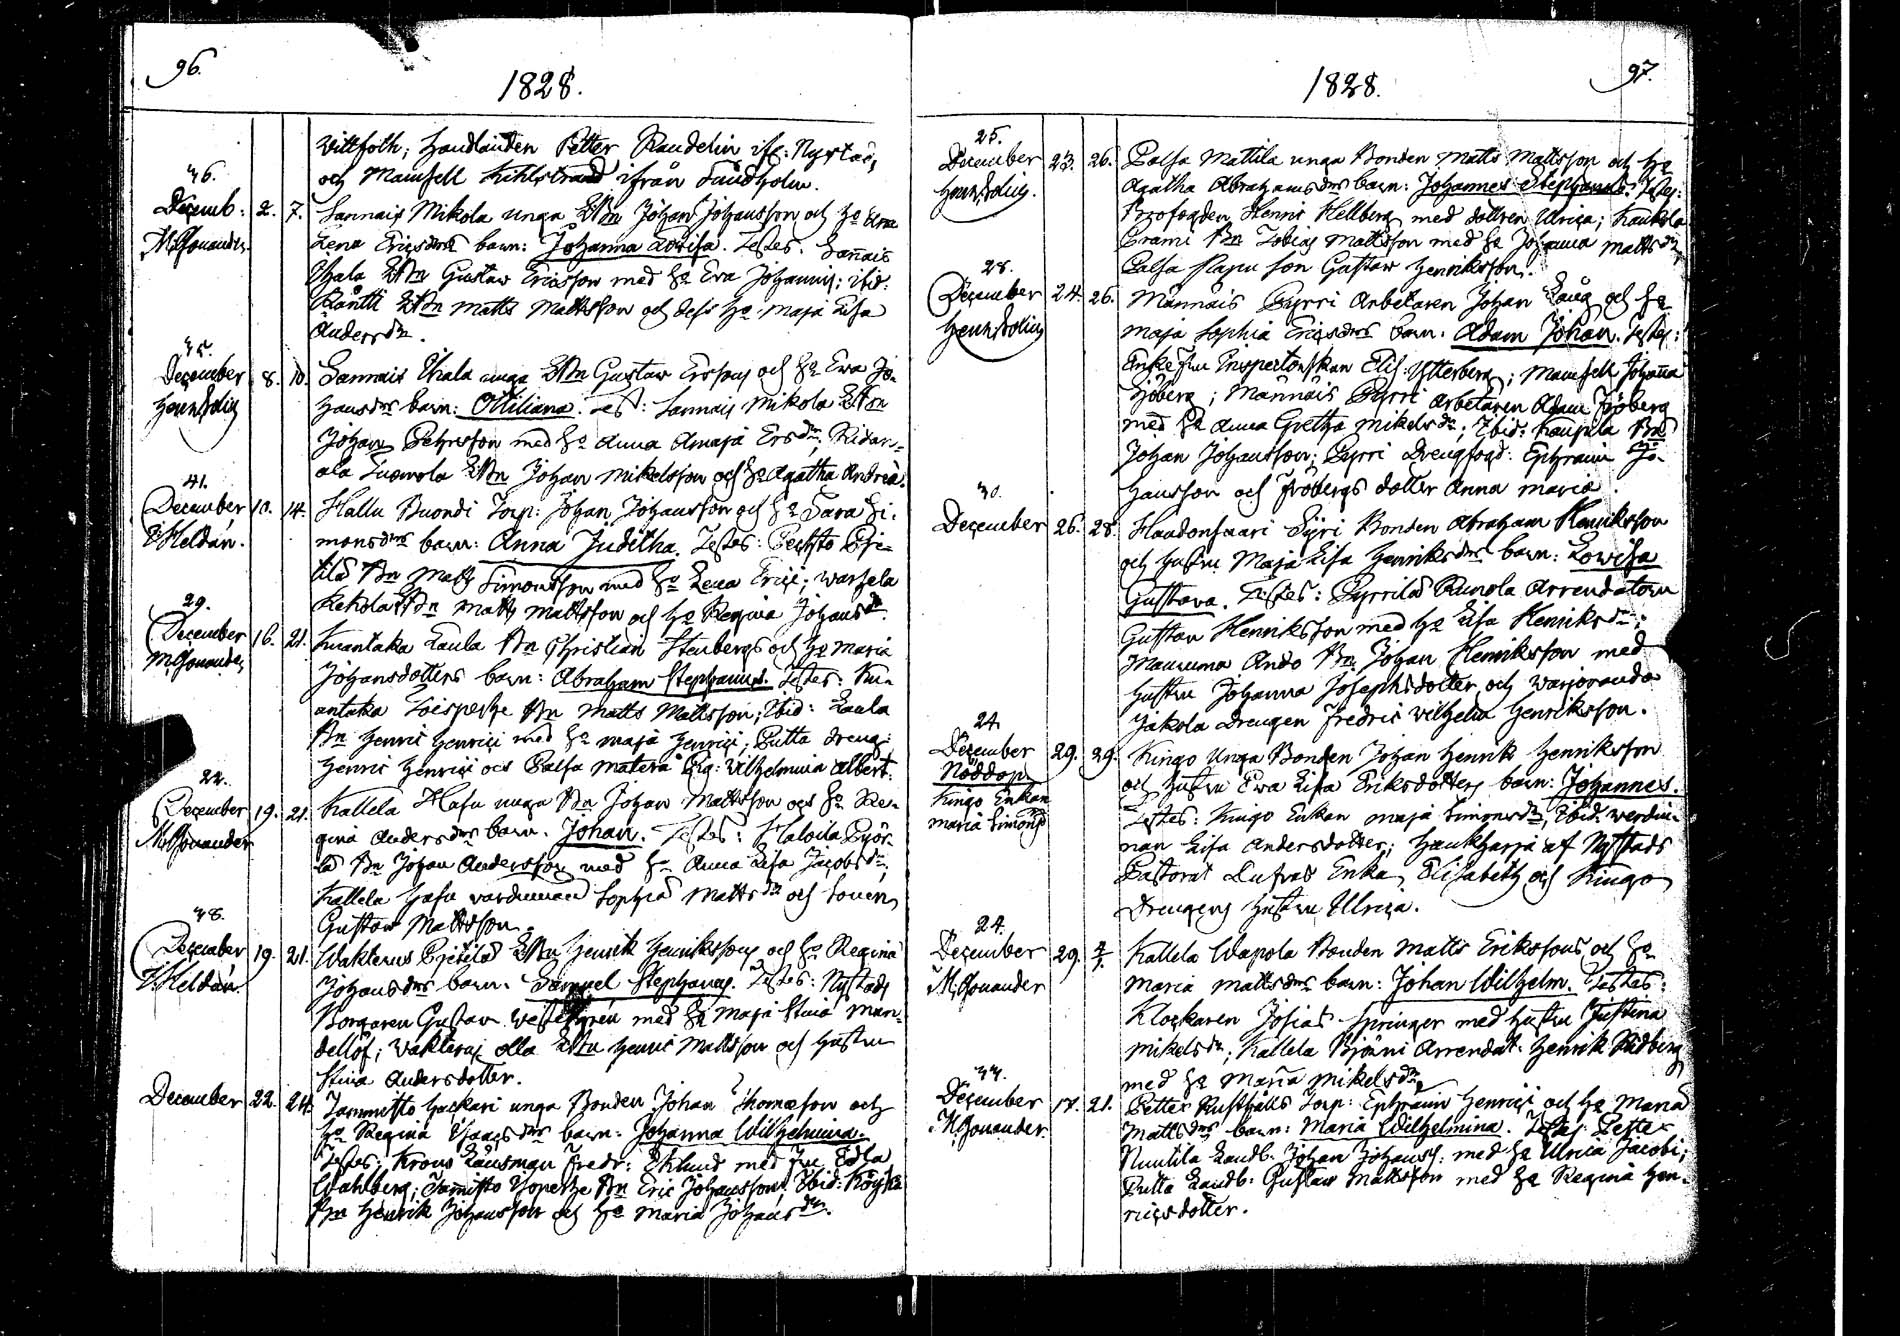 96.
1828.
Wittfoth; Handlanden Petter Randelin ifr: Nystad,
och Mamsell Kihlstrand ifrån Sundholm.
36.
Decemb: 2. 7. Sannais Mikola unga Bn Johan Johansson och ho
M. Gonander. Lena Ericsdrs barn: Johanna Lovisa. Testes: Sannais
Uhala Bn Gustaw Ericsson med ho Eva Johannis; ibid:
Bn Matts Mattsson och dess ho Maja Lisa
Andersdr.
35.
December 8. 10. Sannais Uhala unga Bn Gustaw Ersson och ho Ewa Jo-
hansdrs barn: Ottiliana. Test: Sannais Mikola Bn
Johan Pehrsson med ho Anna Maja Ersdr; Kidas-
ala Bn Johan Mikelsson och ho Agatha Andreæ.
41.
December 10. 14. Hallu Ruondi Torp: Johan Johansson och ho Sara Si-
Heldán. monsdrs barn: Anna Juditha. Testes: Pje-
tilä Bn Matts Simonsson med ho Lena Erici; Warhela
Kekola Bn Matts Mattsson och ho Regina Johansdr.
29.
December 16. 21. Laula Bn Christian Stenbergs och ho Maria
M. Gonander, Johansdotters barn: Abraham Stephanus. Testes: Ku-
antaka Bn Matts Mattsson; Ibid: Laula
Bn Henric Henrici med ho Maja Henrici; Putta dreng:
Henric Henrici och Palsa Matera Pig: Wilhelmina Albert.
22.
December 19. 21. Kallela Hasu unga Bn Johan Mattsson och ho Re-
M. Gonander gina Andersdrs barn: Johan. Testes: Haloila Pyör-
lä Bn Johan Andersson med ho Anna Lisa Jacobsdr;
Kallela Hasu Sophia Mattsdr och Sonen
Gustav Mattsson.
38.
December 19. 21. Wakterus Pietilas Bn Henrik Henrikssons och ho Regina
Heldán. Johansdrs barn: Samuel Stephanus. Testes: Nystads
Borgaren Gustav Westergrén med ho Maja Stina Man-
dellöf; Wakterus Olla Bn Henric Mattsson och Hustru
Stina Andersdotter.
December 22. 24. Tammitto Hackari unga Bonden Johan Thomasson och
ho Regina Isaacsdrs barn: Johanna Wilhelmina.
Testes: Krono Länsman Fredr: Eklund med Fru Edla
Wahlberg; Tamitto Bn Eric Johansson; Ibid:
Bn Henrik Johansson och ho Maria Johansdr.
97.
1828.
25.
December 23. 26. Palsa Mattila unga Bonden Matts Mattsson och ho
Agatha Abrahamsdrs barn: Johannes Stephanus. Testes:
Henric Hellberg med dottren Ulrica; Kaukola
Prami Bn Tobias Mattsson med ho Johanna Mattsdr,
Palsa son Gustaw Henriksson.
28.
December 24. 26. Männäis Pyrri Arbetaren Johan Lång och ho
Maja Sophia Ericsdrs barn: Adam Johan. Testes:
Enke Fru Inspectorskan Elis: Ytterberg; Mamsell Johanna
Sjöberg; Männäis Pyrri Arbetaren Adam Fröberg
med ho Anna Gretha Mikelsdr; Ibid: Kaupila Bn
Johan Johansson; Pyrri Drengfogd: Ephraim Jo-
hansson och Fröbergs dotter Anna Maria.
30.
December 26. 28. Haudonsaari Syri Bonden Abraham Henriksson
och hustru Maja Lisa Henriksdrs barn: Lowisa
Gustava. Testes: Pyrrilä Runola Arrendatorn
Gustav Henriksson med ho Lisa Henriksdr;
Mauruma Ando Bn Johan Henriksson med
hustru Johanna Josephsdotter och Warjoranda
Jakola Drengen Fredric Wilhelm Henriksson.
24.
December 29. 29. Kingo Unga Bonden Johan Henrik Henriksson
Nöddop. och Hustru Ewa Lisa Eriksdotters barn: Johannes.
Kingo Enkan Testes: Kingo Enkan Maja Simonsdr, Ibid: werdin-
Maria Simonsd nan Lisa Andersdotter; Haukharja af Nystads
Pastorat Enka Elisabeth och Kingo
Drengens Hustru Ulrica.
24.
December 29. Kallela Wapola Bonden Matts Erikssons och ho
M. Gonander Maria Mattsdrs barn: Johan Wilhelm. Testes:
Klockaren Josias Springer med hustru Justina
Mikelsdr; Kallela Björni Arrendat: Henrik Widberg
med ho Maria Mikelsdr.
33.
December 17. 21. Petter Rusthålls Torp: Ephraim Henrici och ho Maria
M. Gonander. Mattsdrs barn: Maria Wilhelmina. Testes: Petter
Nuutila Landb: Johan Johanss: med ho Ulrica Jacobi;
Putta Landb: Gustaw Mattsson med ho Regina Hen-
ricsdotter.